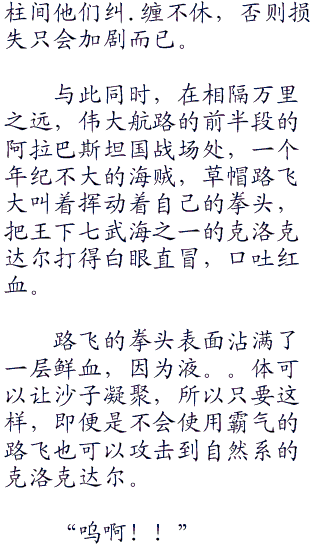 柱间他们纠.缠不休，否则损
失只会加剧而已。
与此同时，在相隔万里
之远，伟大航路的前半段的
阿拉巴斯坦国战场处，一个
年纪不大的海贼，草帽路飞
大叫着挥动着自己的拳头，
把王下七武海之一的克洛克
达尔打得白眼直冒，口吐红
血。
路飞的拳头表面沾满了
一层鲜血，因为液。。体可
以让沙子凝聚，所以只要这
样，即便是不会使用霸气的
路飞也可以攻击到自然系的
克洛克达尔。
“呜啊！！”